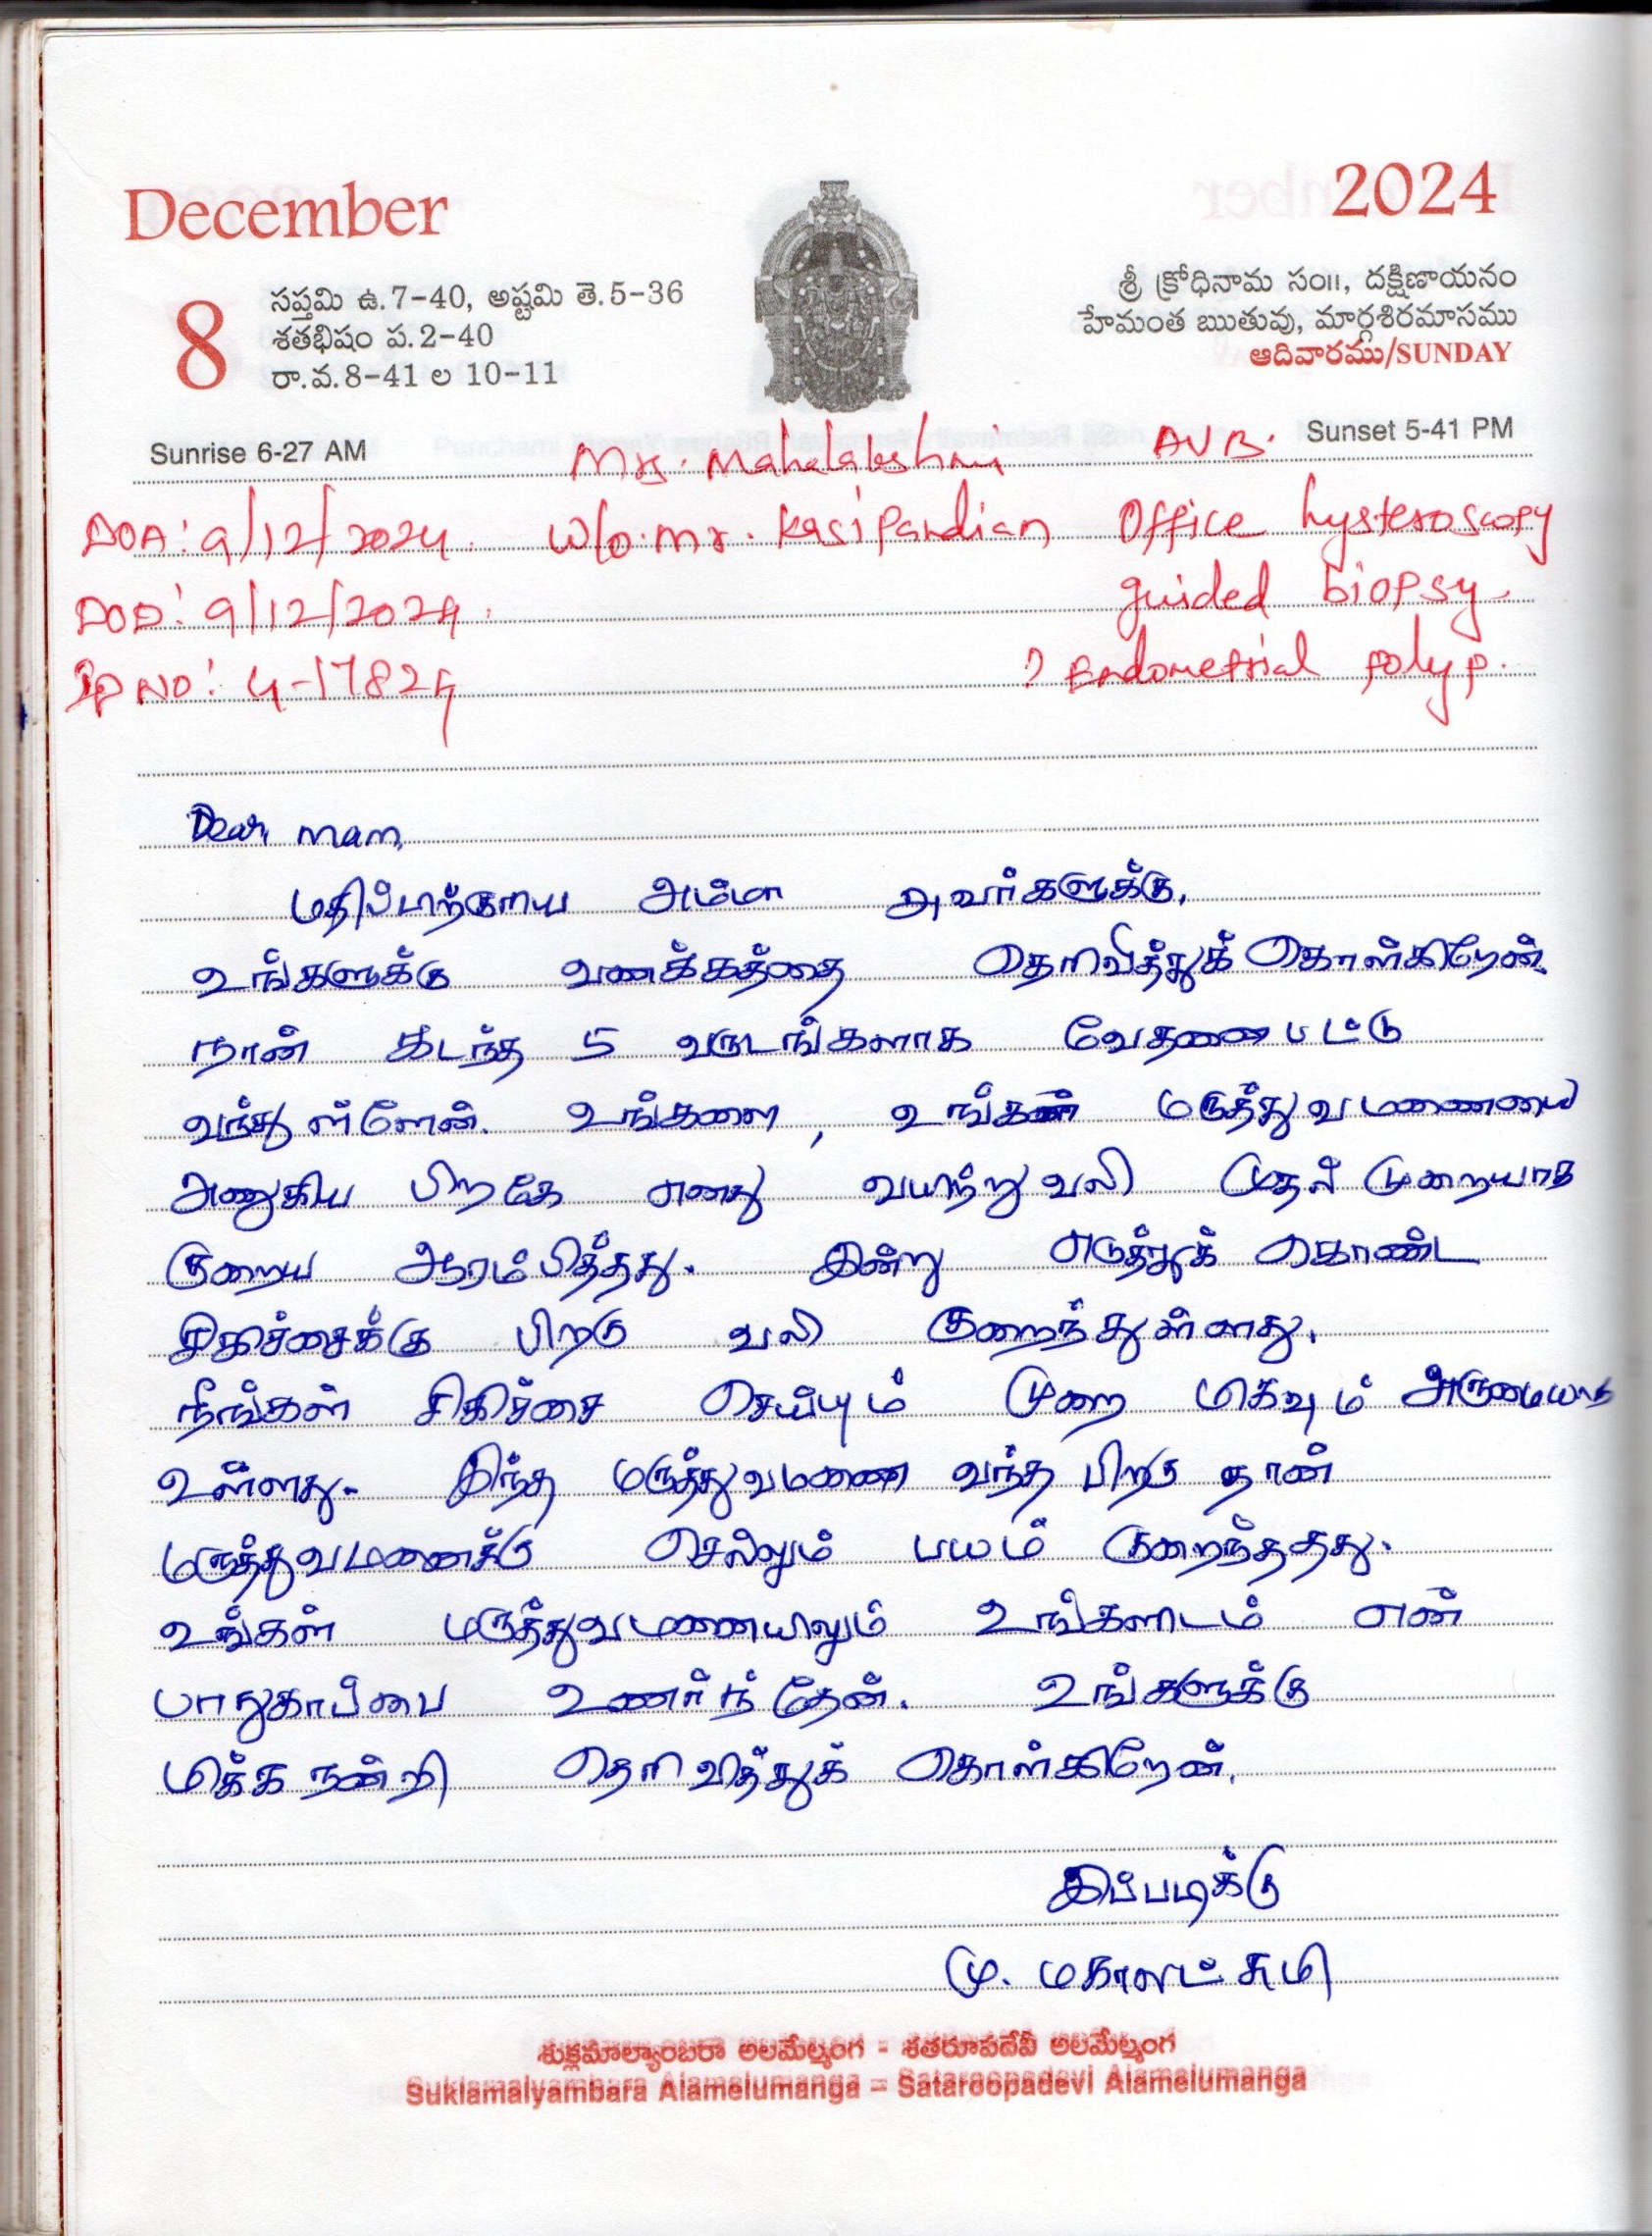 December
2024
8
సప్తమి ఉ.7-40, అష్టమి తె.5-36
శతభిషం ప.2-40
రా.వ.8-41 ల 10-11
శ్రీ క్రోధినామ సం॥, దక్షిణాయనం
హేమంత ఋతువు, మార్గశిరమాసము
ఆదివారము/SUNDAY
Sunrise 6-27 AM
Sunset 5-41 PM
Mrs. Mahalakshmi AUB.
DOA: 9/12/2024. W/o. Mr. Kasipandian Office hysteroscopy
DOD: 9/12/2024. guided biopsy.
IP NO: G-17824 ? Endometrial polyp.
Dear, mam,
மதிப்பிற்குரிய அம்மா அவர்களுக்கு,
உங்களுக்கு வணக்கத்தை தெரிவித்துக் கொள்கிறேன்.
நான் கடந்த 5 வருடங்களாக வேதணைபட்டு
வந்துள்ளேன். உங்களை, உங்கள் மருத்துவமணையை
அணுகிய பிறகே எனது வயிற்றுவலி முதல் முறையாக
குறைய ஆரம்பித்தது. இன்று எடுத்துக் கொண்ட
சிகிச்சைக்கு பிறகு வலி குறைந்துள்ளது.
நீங்கள் சிகிச்சை செய்யும் முறை மிகவும் அருமையாக
உள்ளது. இந்த மருத்துவமணை வந்த பிறகு தான்
மருத்துவமணைக்கு செல்லும் பயம் குறைந்ததது.
உங்கள் மருத்துவமணையிலும் உங்களிடம் என்
பாதுகாப்பை உணர்ந்தேன். உங்களுக்கு
மிக்க நன்றி தெரிவித்துக் கொள்கிறேன்.
இப்படிக்கு
மு. மகாலட்சுமி
శుక్లమాల్యాంబరా అలమేల్మంగ - శతరూపదేవీ అలమేల్మంగ
Suklamalyambara Alamelumanga – Sataroopadevi Alamelumanga